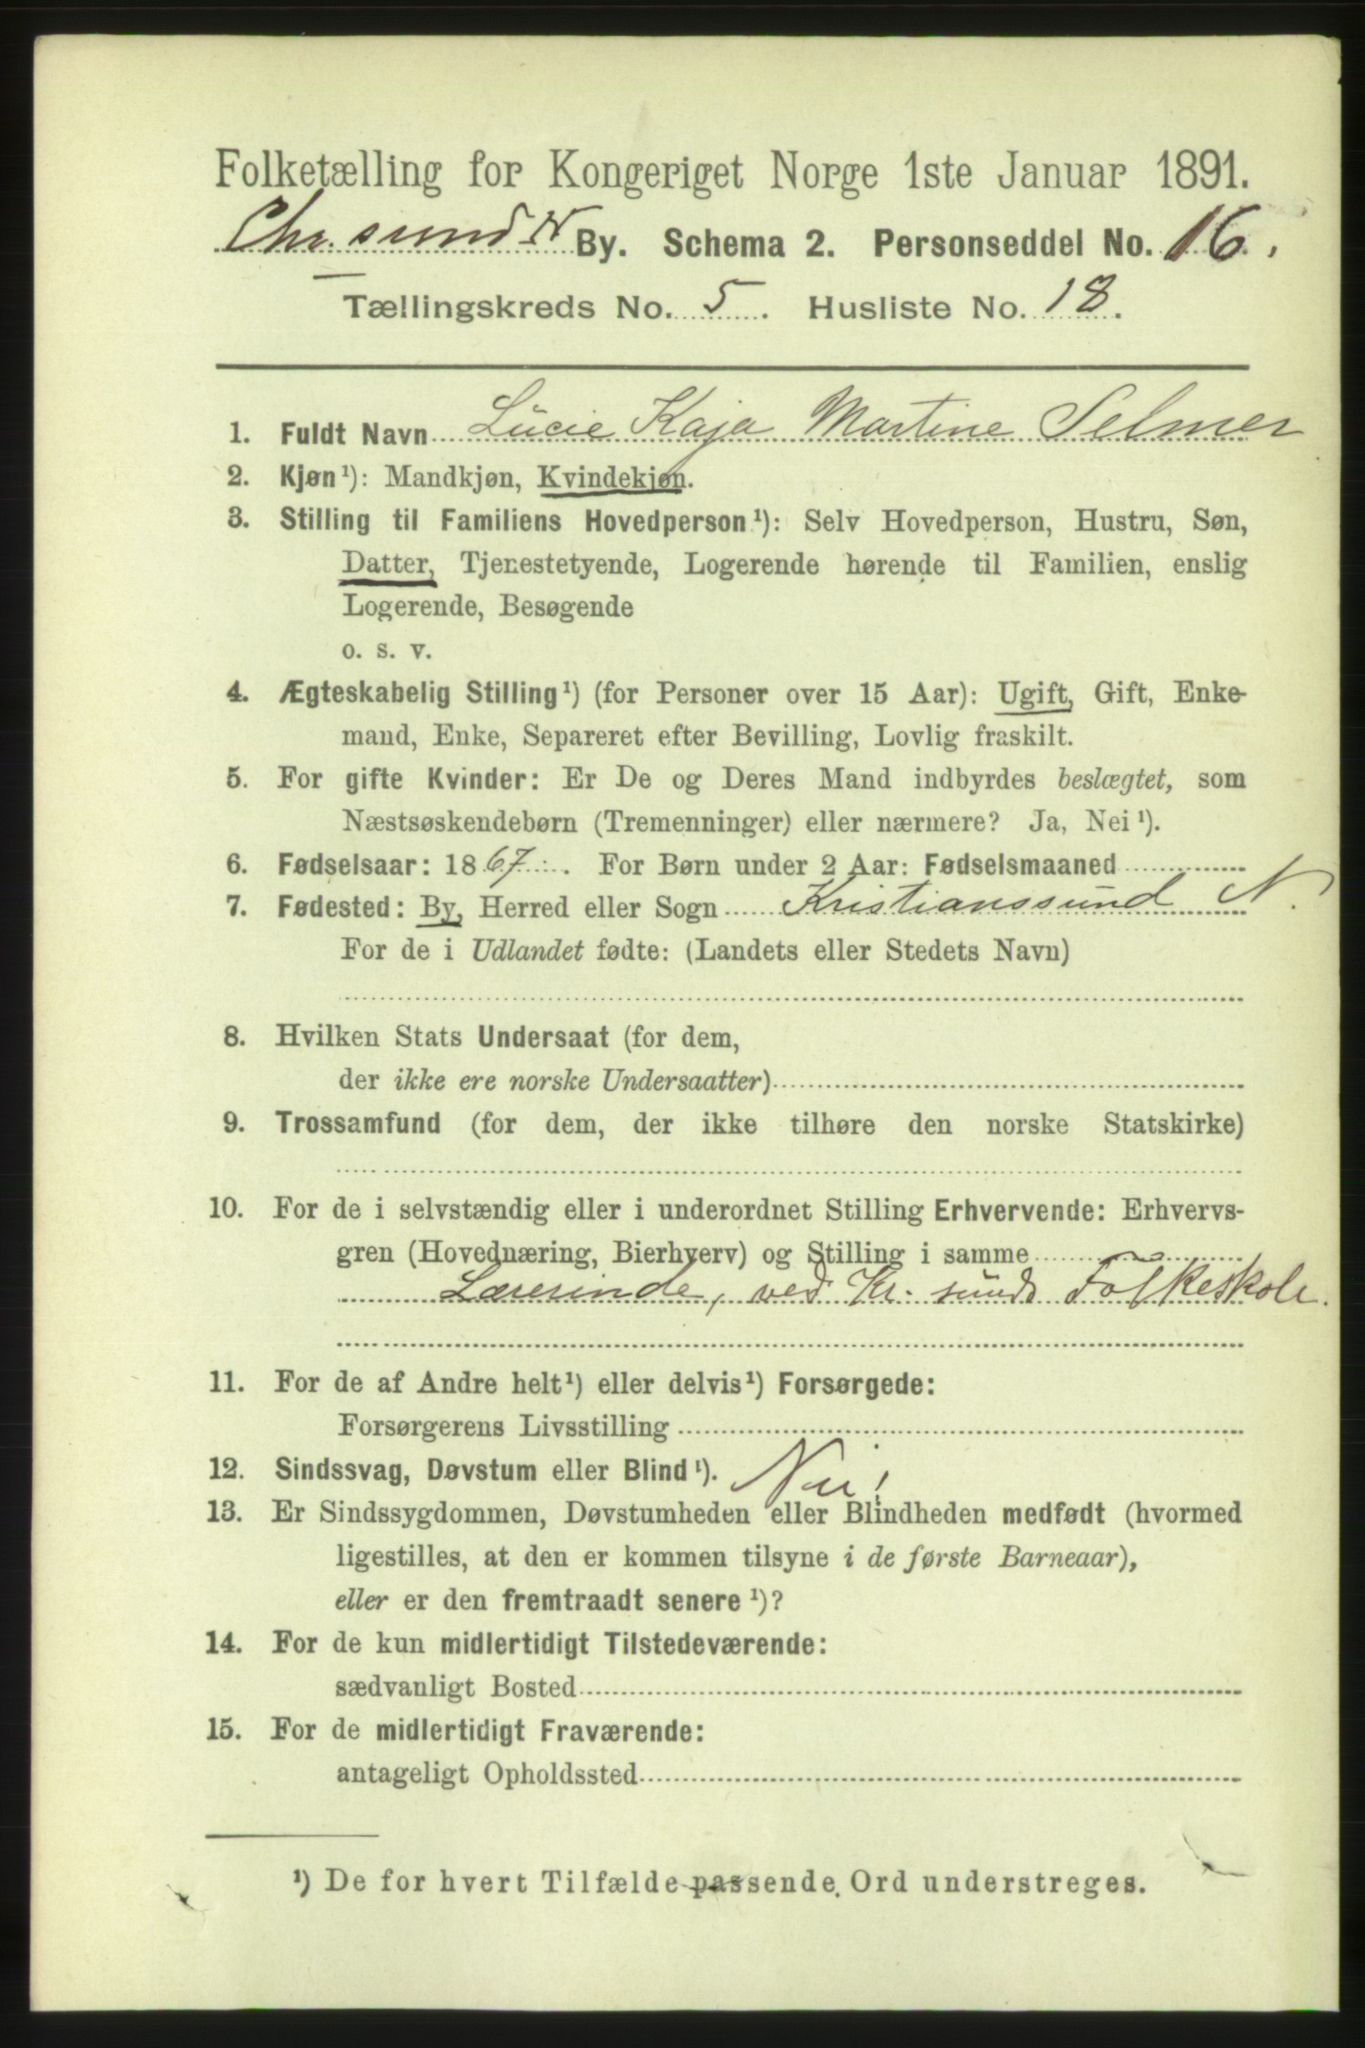 Folketælling for Kongeriget Norge 1ste Januar 1891.
Chr.sund N By. Schema 2. Personseddel No. 16.
Tællingskreds No. 5. Husliste No. 18.
1. Fuldt Navn Lucie Kaja Martine Selmer
2. Kjøn¹): Mandkjøn, Kvindekjøn.
3. Stilling til Familiens Hovedperson¹): Selv Hovedperson, Hustru, Søn,
Datter, Tjenestetyende, Logerende hørende til Familien, enslig
Logerende, Besøgende
o. s. v.
4. Ægteskabelig Stilling¹) (for Personer over 15 Aar): Ugift, Gift, Enke-
mand, Enke, Separeret efter Bevilling, Lovlig fraskilt.
5. For gifte Kvinder: Er De og Deres Mand indbyrdes beslægtet, som
Næstsøskendebørn (Tremenninger) eller nærmere? Ja, Nei¹).
6. Fødselsaar: 1867. For Børn under 2 Aar: Fødselsmaaned
7. Fødested: By, Herred eller Sogn Kristianssund N.
For de i Udlandet fødte: (Landets eller Stedets Navn)
8. Hvilken Stats Undersaat (for dem,
der ikke ere norske Undersaatter)
9. Trossamfund (for dem, der ikke tilhøre den norske Statskirke)
10. For de i selvstændig eller i underordnet Stilling Erhvervende: Erhvervs-
gren (Hovednæring, Bierhverv) og Stilling i samme
Lærerinde, ved Kr.sunds Folkeskole.
11. For de af Andre helt¹) eller delvis¹) Forsørgede:
Forsørgerens Livsstilling
12. Sindssvag, Døvstum eller Blind¹). Nei!
13. Er Sindssygdommen, Døvstumheden eller Blindheden medfødt (hvormed
ligestilles, at den er kommen tilsyne i de første Barneaar),
eller er den fremtraadt senere¹)?
14. For de kun midlertidigt Tilstedeværende:
sædvanligt Bosted
15. For de midlertidigt Fraværende:
antageligt Opholdssted
¹) De for hvert Tilfælde passende Ord understreges.